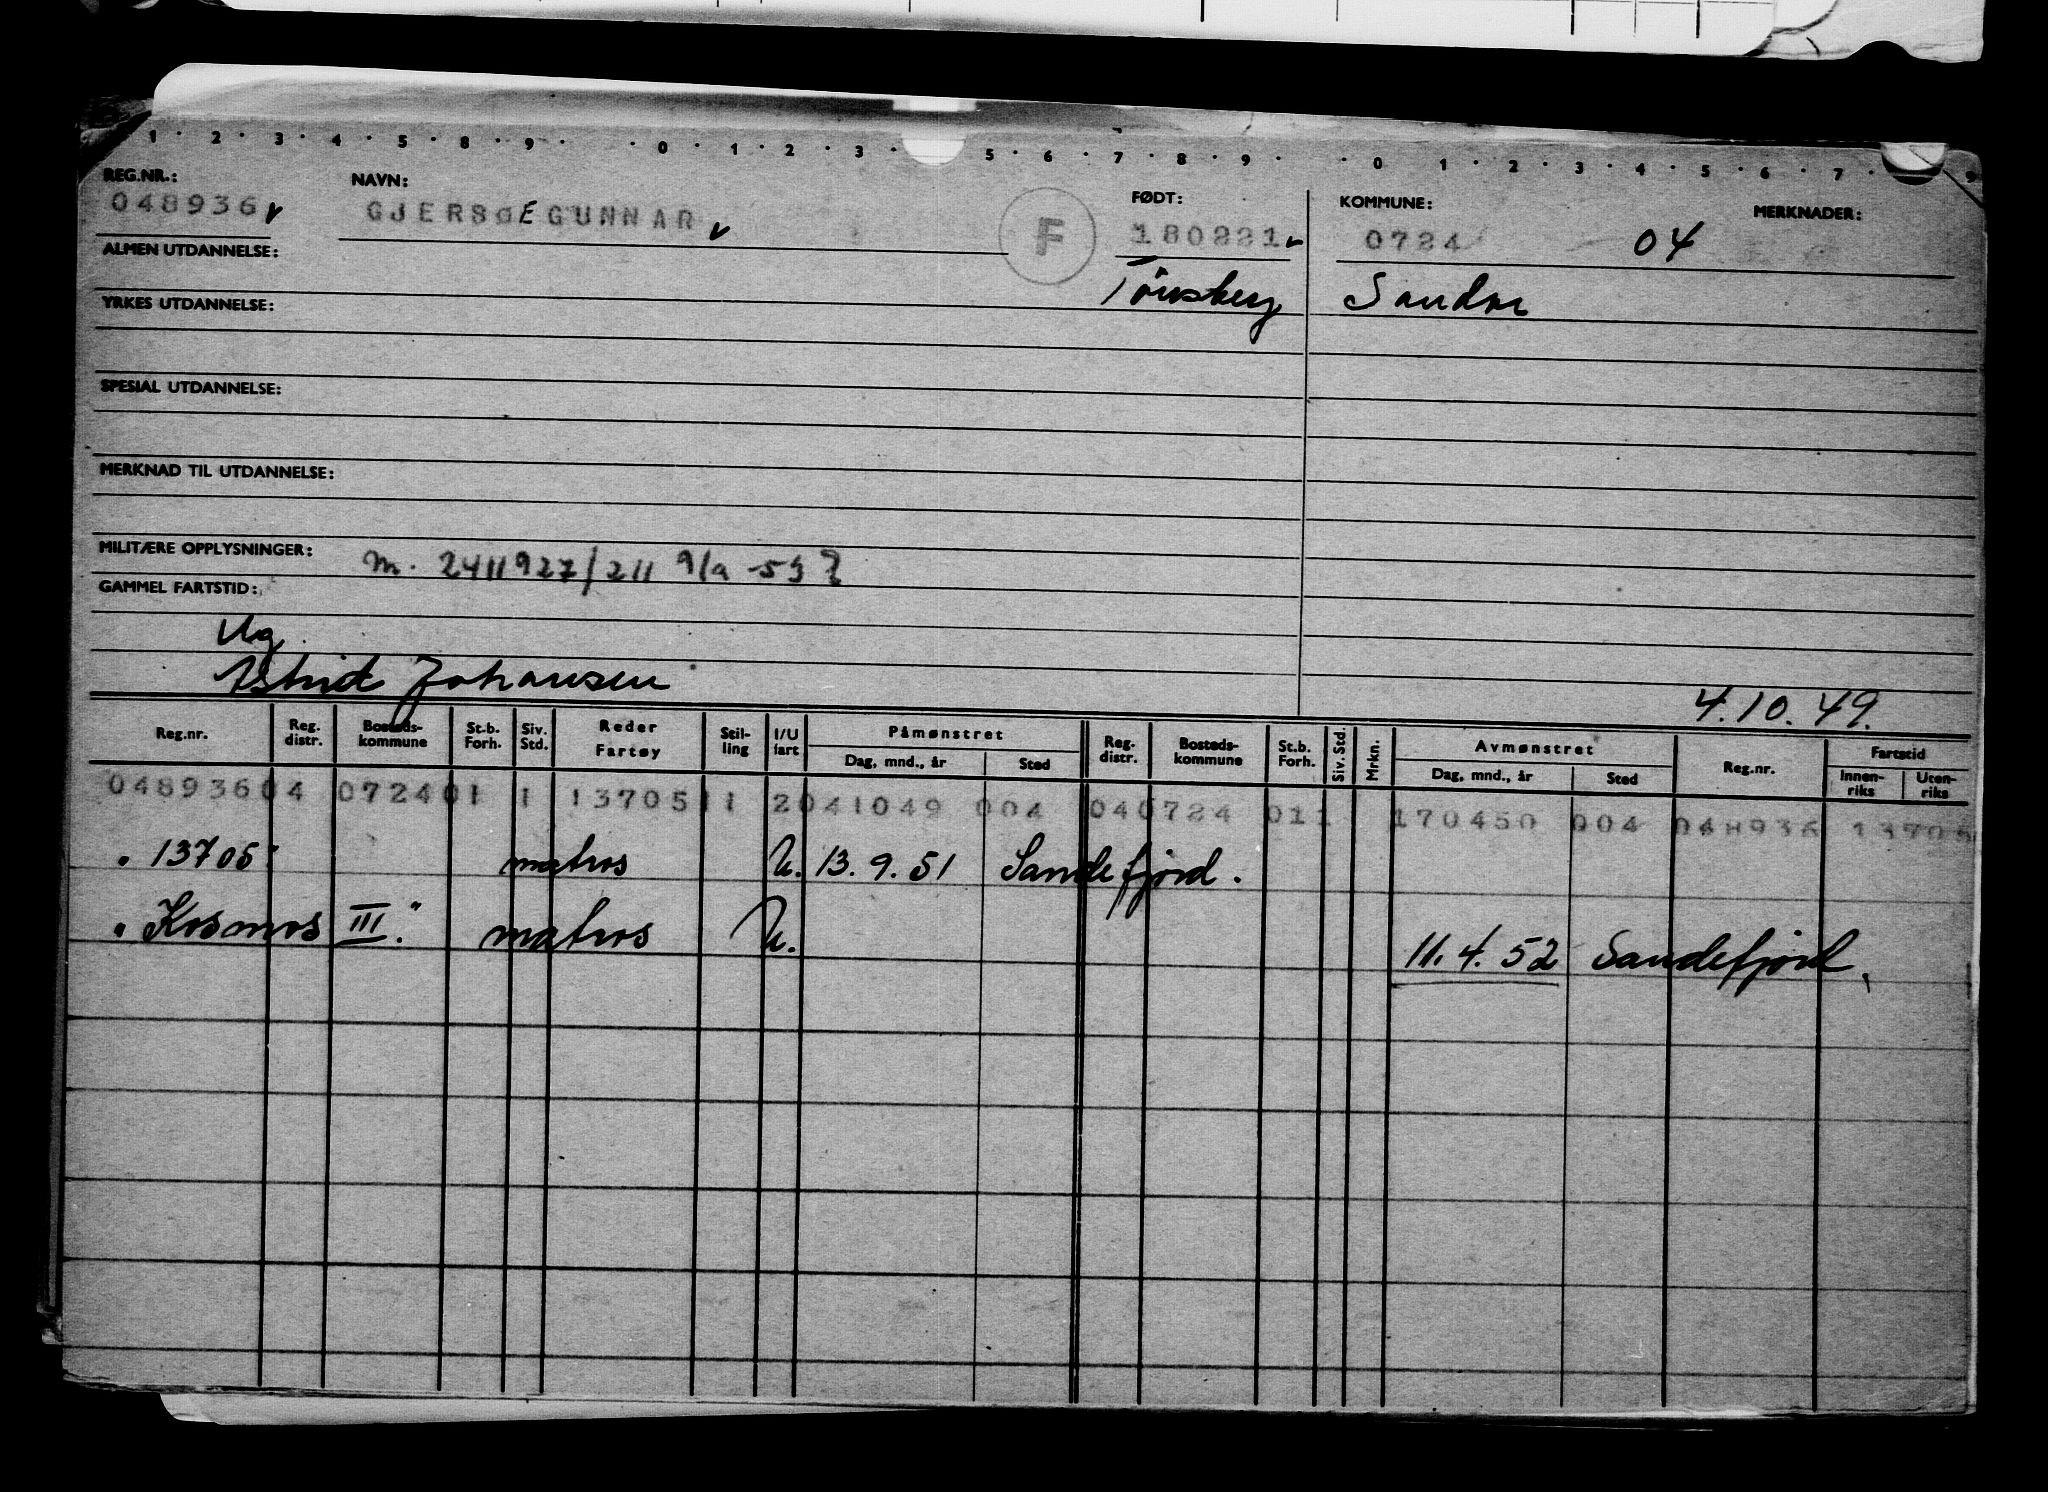 1 · 2 · 3 · 4 · 5 · 8 · 9 · · 0 · 1 · 2 · 3 · 5 · 6 · 7 · 8 · 9 · · 0 · 1 · 2 · 3 · 4 · 5 · 6 · 7 · 9
REG.NR.: NAVN: FØDT: KOMMUNE: MERKNADER:
048936 GJERSØE GUNNAR F 180221 0724 04
ALMEN UTDANNELSE:
Tønsberg Sandar
YRKES UTDANNELSE:
SPESIAL UTDANNELSE:
MERKNAD TIL UTDANNELSE:
MILITÆRE OPPLYSNINGER: m. 2411927/211 9/9-53
GAMMEL FARTSTID:
Ug
Astrid Johansen
4.10.49.
Reg.nr. Reg. distr. Bosteds-kommune St.b. Forh. Siv. Std. Reder Fartøy Stil-ling I/U fart Påmønstret Dag, mnd., år Sted Reg. distr. Bosteds-kommune St.b. Forh. Siv. Std. Mrkn. Avmønstret Dag, mnd., år Sted Reg.nr. Fartstid Innen-riks Uten-riks
048936 04 0724 01 1 13705 11 2 041049 004 04 0724 01 1 170450 004 048936 13705
" 13705" matros U. 13.9.51 Sandefjord.
"Kosmos III." matros U. 11.4.52 Sandefjord.